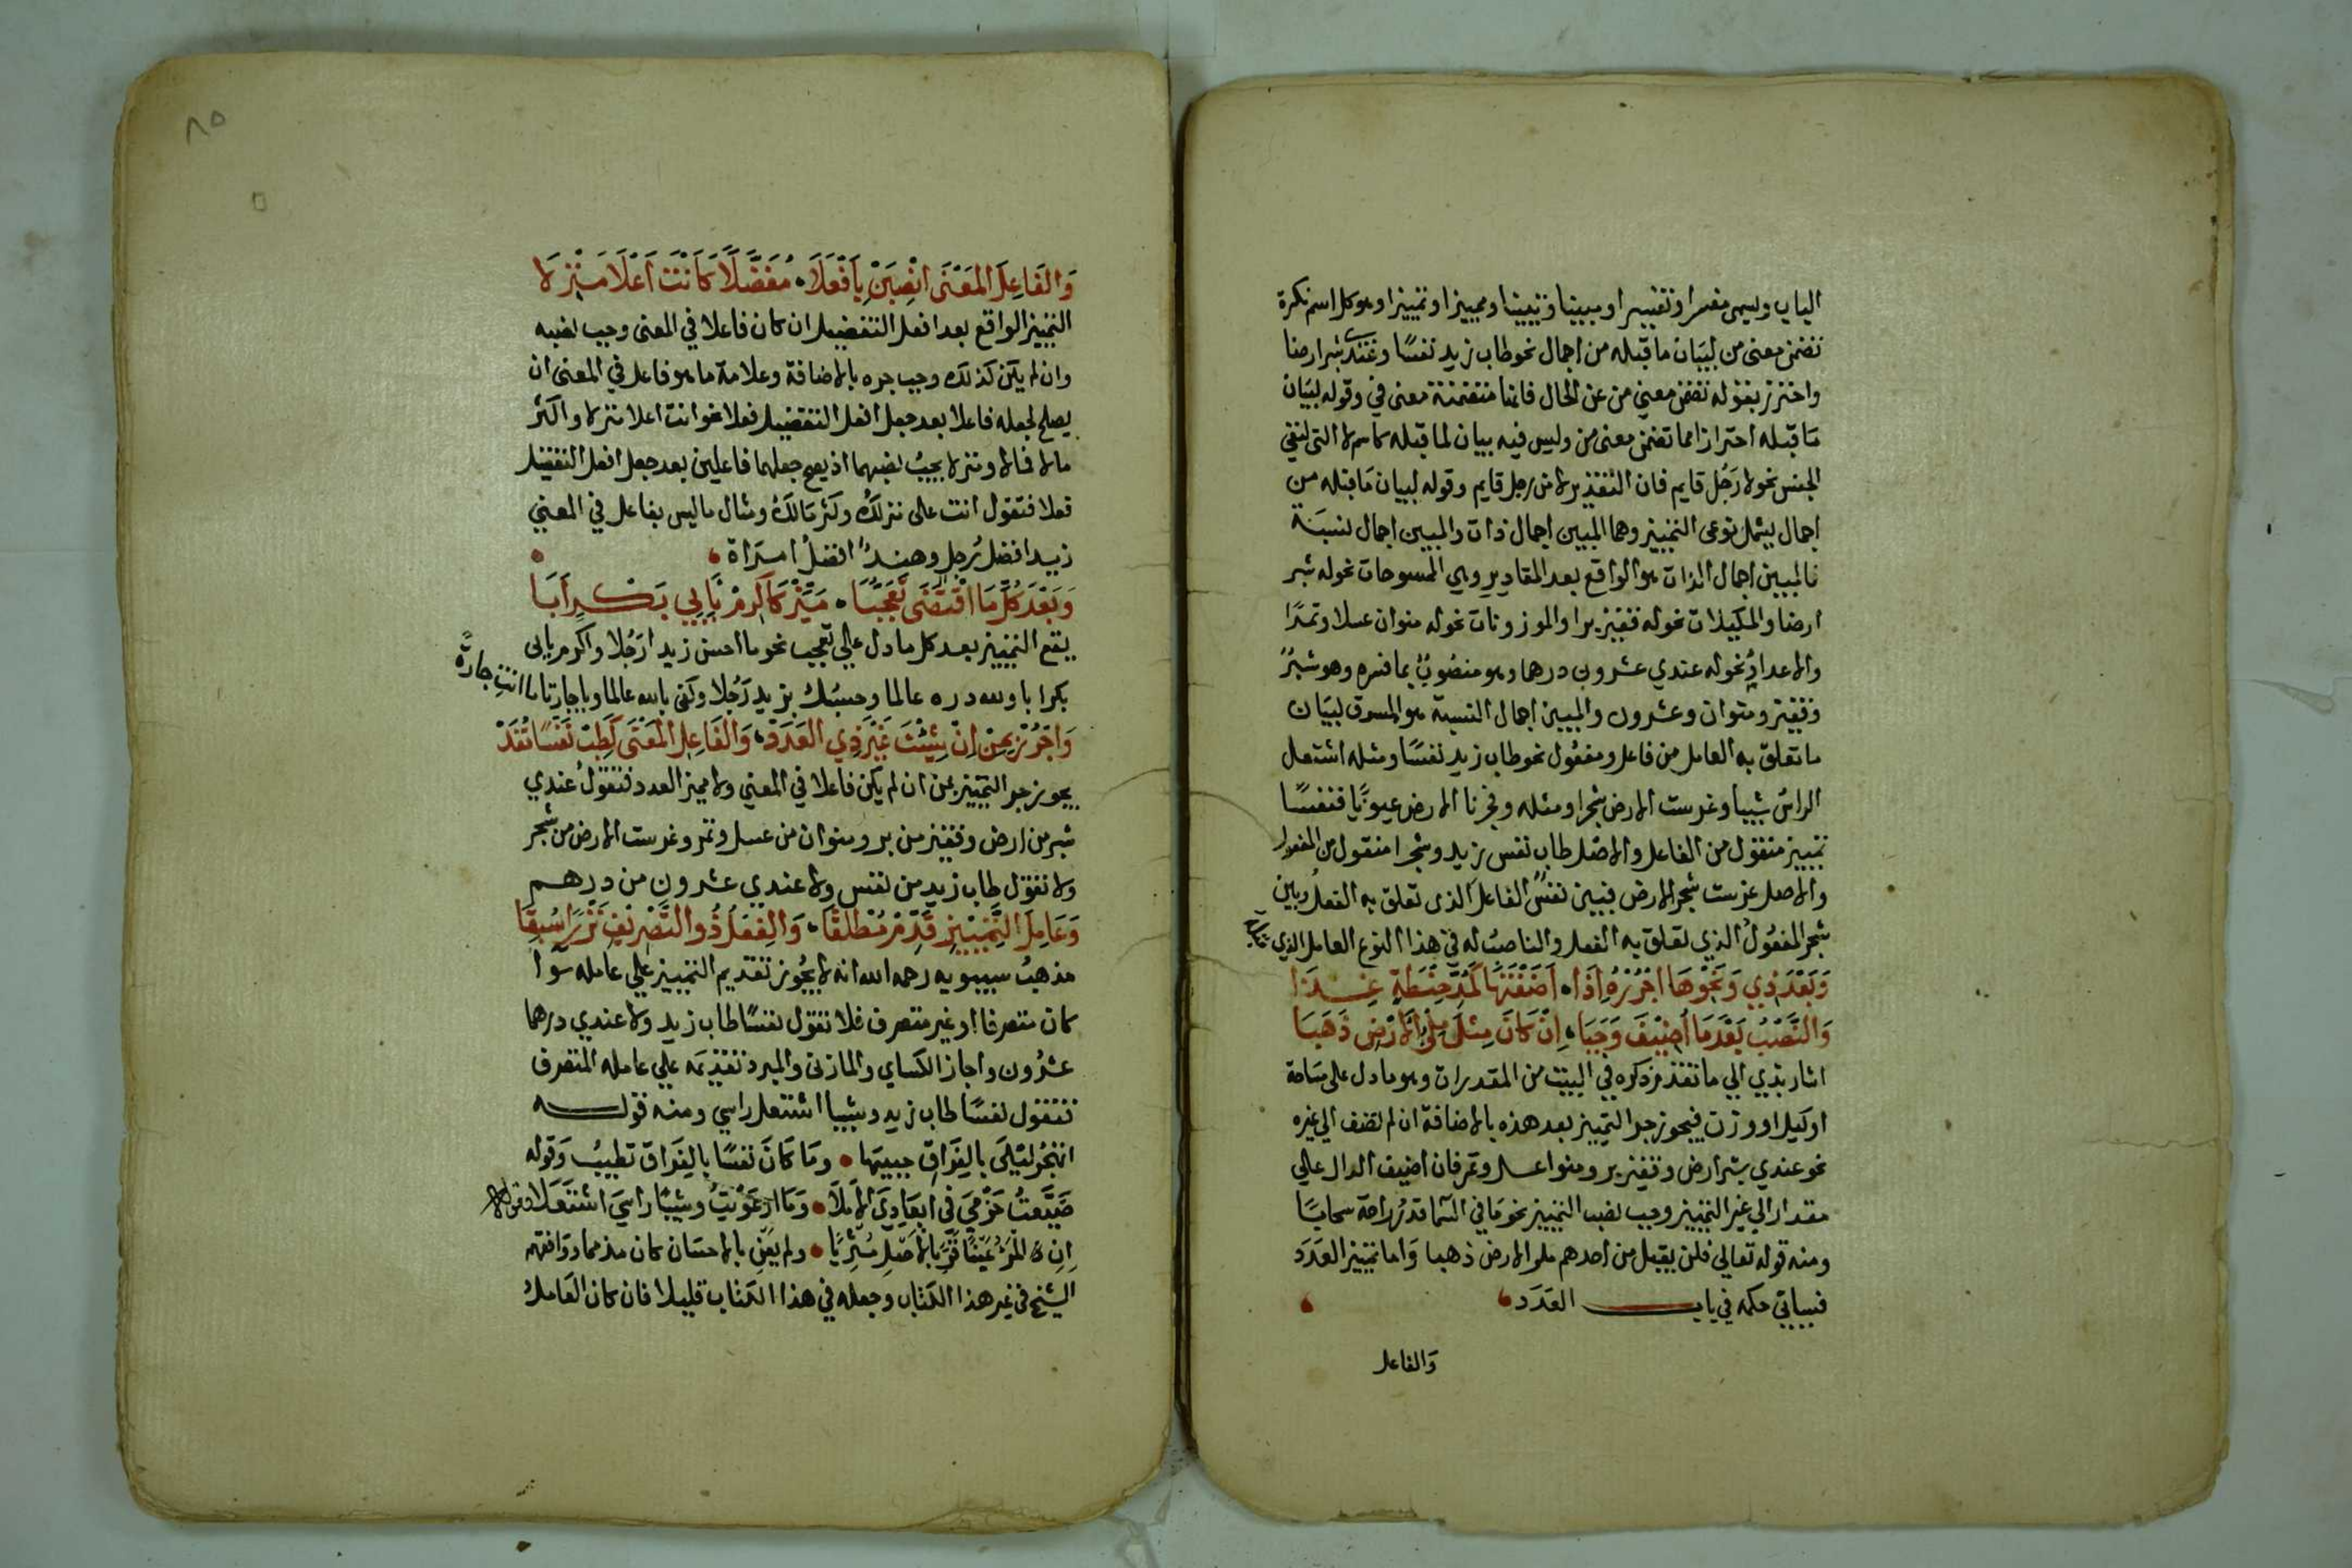 الباب ويسمى مفسرا وتفسيرا ومبينا وتبيينا ومميزا وتمييزا وهو كل اسم نكرة
تضمن معنى من لبيان ما قبله من اجمال نحو طاب زيد نفسًا وعندي شبر ارضا
واحترز بقوله تضمن معني من عن الحال فانها متضمنة معنى في وقوله لبيان
مَا قبله احترازا مما تضمن معنى من وليس فيه بيان لما قبله كاسم لا التي لنفي
الجنس نحو لا رَجُل قايم فان التقدير لا من رجل قايم وقوله لبيان مَا قبله من
اجمال يشمل نوعى التمييز وهما المبين اجمال ذات والمبين اجمال نسبَة
فالمبين اجمال الذات هو الواقع بعد المقادير وهي الممسوحات نحو له شبر
ارضا والمكيلات نحو له قفيز برا والموزونات نحو له منوان عسلا وتمرًا
والاعداد نحو له عندي عشرون درهما وهو منصوبٌ بما فسره وهو شبرٌ
وقفيز ومنوان وعشرون والمبين اجمال النسبة هو المسوق لبيَان
ما تعلق به العامل من فاعل ومفعُول نحو طاب زيد نفسًا ومثله اشتعل
الراسُ شيبا وغرست الارض شجرا ومثله وفجرنا الارض عيونًا فنفسًا
تمييز منقول من الفاعل والاصل طاب نفس زيد وشجرا منقول من المفعول
والاصل غرست شجر الارض فبين نفسًا الفاعل الذى تعلق به الفعل وبين
شجر المفعُولُ الذي تعلق به الفعل والناصبُ له في هذا النوع العامل الذي قبله
وَبَعْدَ ذِي وَنَحْوِهَا اجْرُرْهُ اِذَا ، اَضَفْتَهَا كَمُدِّ حِنْطَةٍ غِــذَا
وَالنَّصْبُ بَعْدَ مَا أُضِيْفَ وَجَبَا ، اِنْ كَانَ مِثْلَ مِلْءُ الْاَرْضِ ذَهَبَا
اشار بذي الي ما تقدم ذكره في البيت من المقدرات وهو ما دل على مسَاحة
او كيل او وزن فيجوز جر التمييز بعد هذه بالاضافة ان لم تضف الي غيره
نحو عندي شبر ارض وقفيز بر ومنوا عسل وتمر فان اضيف الدال على
مقدار الي غير التمييز وجب نصب التمييز نحو مَا في السَّما قدر راحة سحابًا
ومنه قوله تعالي فلن يقبل من احدهم ملء الارض ذهبا وَاما تمييز العدَد
فسياتي حكمه في باب العَدَد ،
وَالفاعل
٨٥
وَالفَاعِلَ المَعْنَى انْصِبَنْ بِاَفْعَلَا ، مُفَضِّلًا كَانْتَ اَعْلَا مَنْزِلَا
التمييز الواقع بعد افعل التفضيل ان كان فاعلا في المعنى وجب نصبه
وان لم يكن كذلك وجب جره بالاضافة وعلامة ما هو فاعل في المعنى ان
يصلح لجعله فاعلا بعد جعل افعل التفضيل فعلا نحو انت اعلا منزلا واكثر
مالا فمالا ومنزلا يجبُ نصبهما اذ يصح جعلهما فاعلين بعد جعل افعل التفضيل
فعلا فتقول انت على منزلكُ وكثر مَالكُ ومثال ما ليس بفاعل في المعني
زيد افضل رُجل وهندٌ افضلُ امرَاة ،
وَبَعْدَ كُلِّ مَا اقْتَضَى تَعَجُّبَا ، مَيِّزْ كَاكْرِمْ بِاَبِي بَـكْـرٍ اَبَا
يقع التمييز بعد كل ما دل على تعجب نحو ما احسن زيدا رَجُلا واكرم بابى
بكر ابا ولله دره عالما وحسبُك بزيد رَجُلا وكفى بالله عالما ويا جارتا ما انتِ جارةً
وَاجْرُرْ بِمِنْ اِنْ شِئْتَ غَيْرَ ذِي العَدَدْ ، وَالفَاعِلِ المَعْنَى كَطِبْ نَفْسًا تُفَدْ
يجوز جر التمييز بمن ان لم يكن فاعلا في المعني ولا مميز العدد فتقولُ عندي
شبر من ارض وقفيز من بر ومنوان من عسل وتمر وغرست الارض من شجر
ولا تقول طاب زيد من نفس ولا عندي عشرون من درهـم
وَعَامِلَ التَّمْيِيْزِ قَدِّمْ مُطْلَقًا ، وَالْفِعْلُ ذُو التَّصْرِيْفِ نَزْرًا سُبِقَا
مذهبُ سيبويه رحمه الله انه لا يجُوز تقديم التمييز علي عامله سوآ
كان متصرفا او غير متصرف فلا تقول نفسًا طاب زيد ولا عندي درهما
عشرُون واجاز الكساي والمازنى والمبرد تقديمَه علي عامله المتصرف
فتقول نفسًا طاب زيد وشيبا اشتعل راسي ومنه قولـه
اتهجُر ليْلَى بالفِرَاقِ حبيبَها ، ومَا كَانَ نفسًا بالفِرَاق تطيبُ وَقوله
ضَيَّعتُ حَزْمِي في ابعَادِيَ الْاَمَلَا ، وَمَا ارعَوْيتُ وشيْبًا راسيَ اشتَعَلَا
ولم يعْنِ بالاحسَان كان مذمما ووَافقهم
الشيخ في غير هذا الكتاب وجعله في هذا الكتاب قليلا فان كان العَاملُ